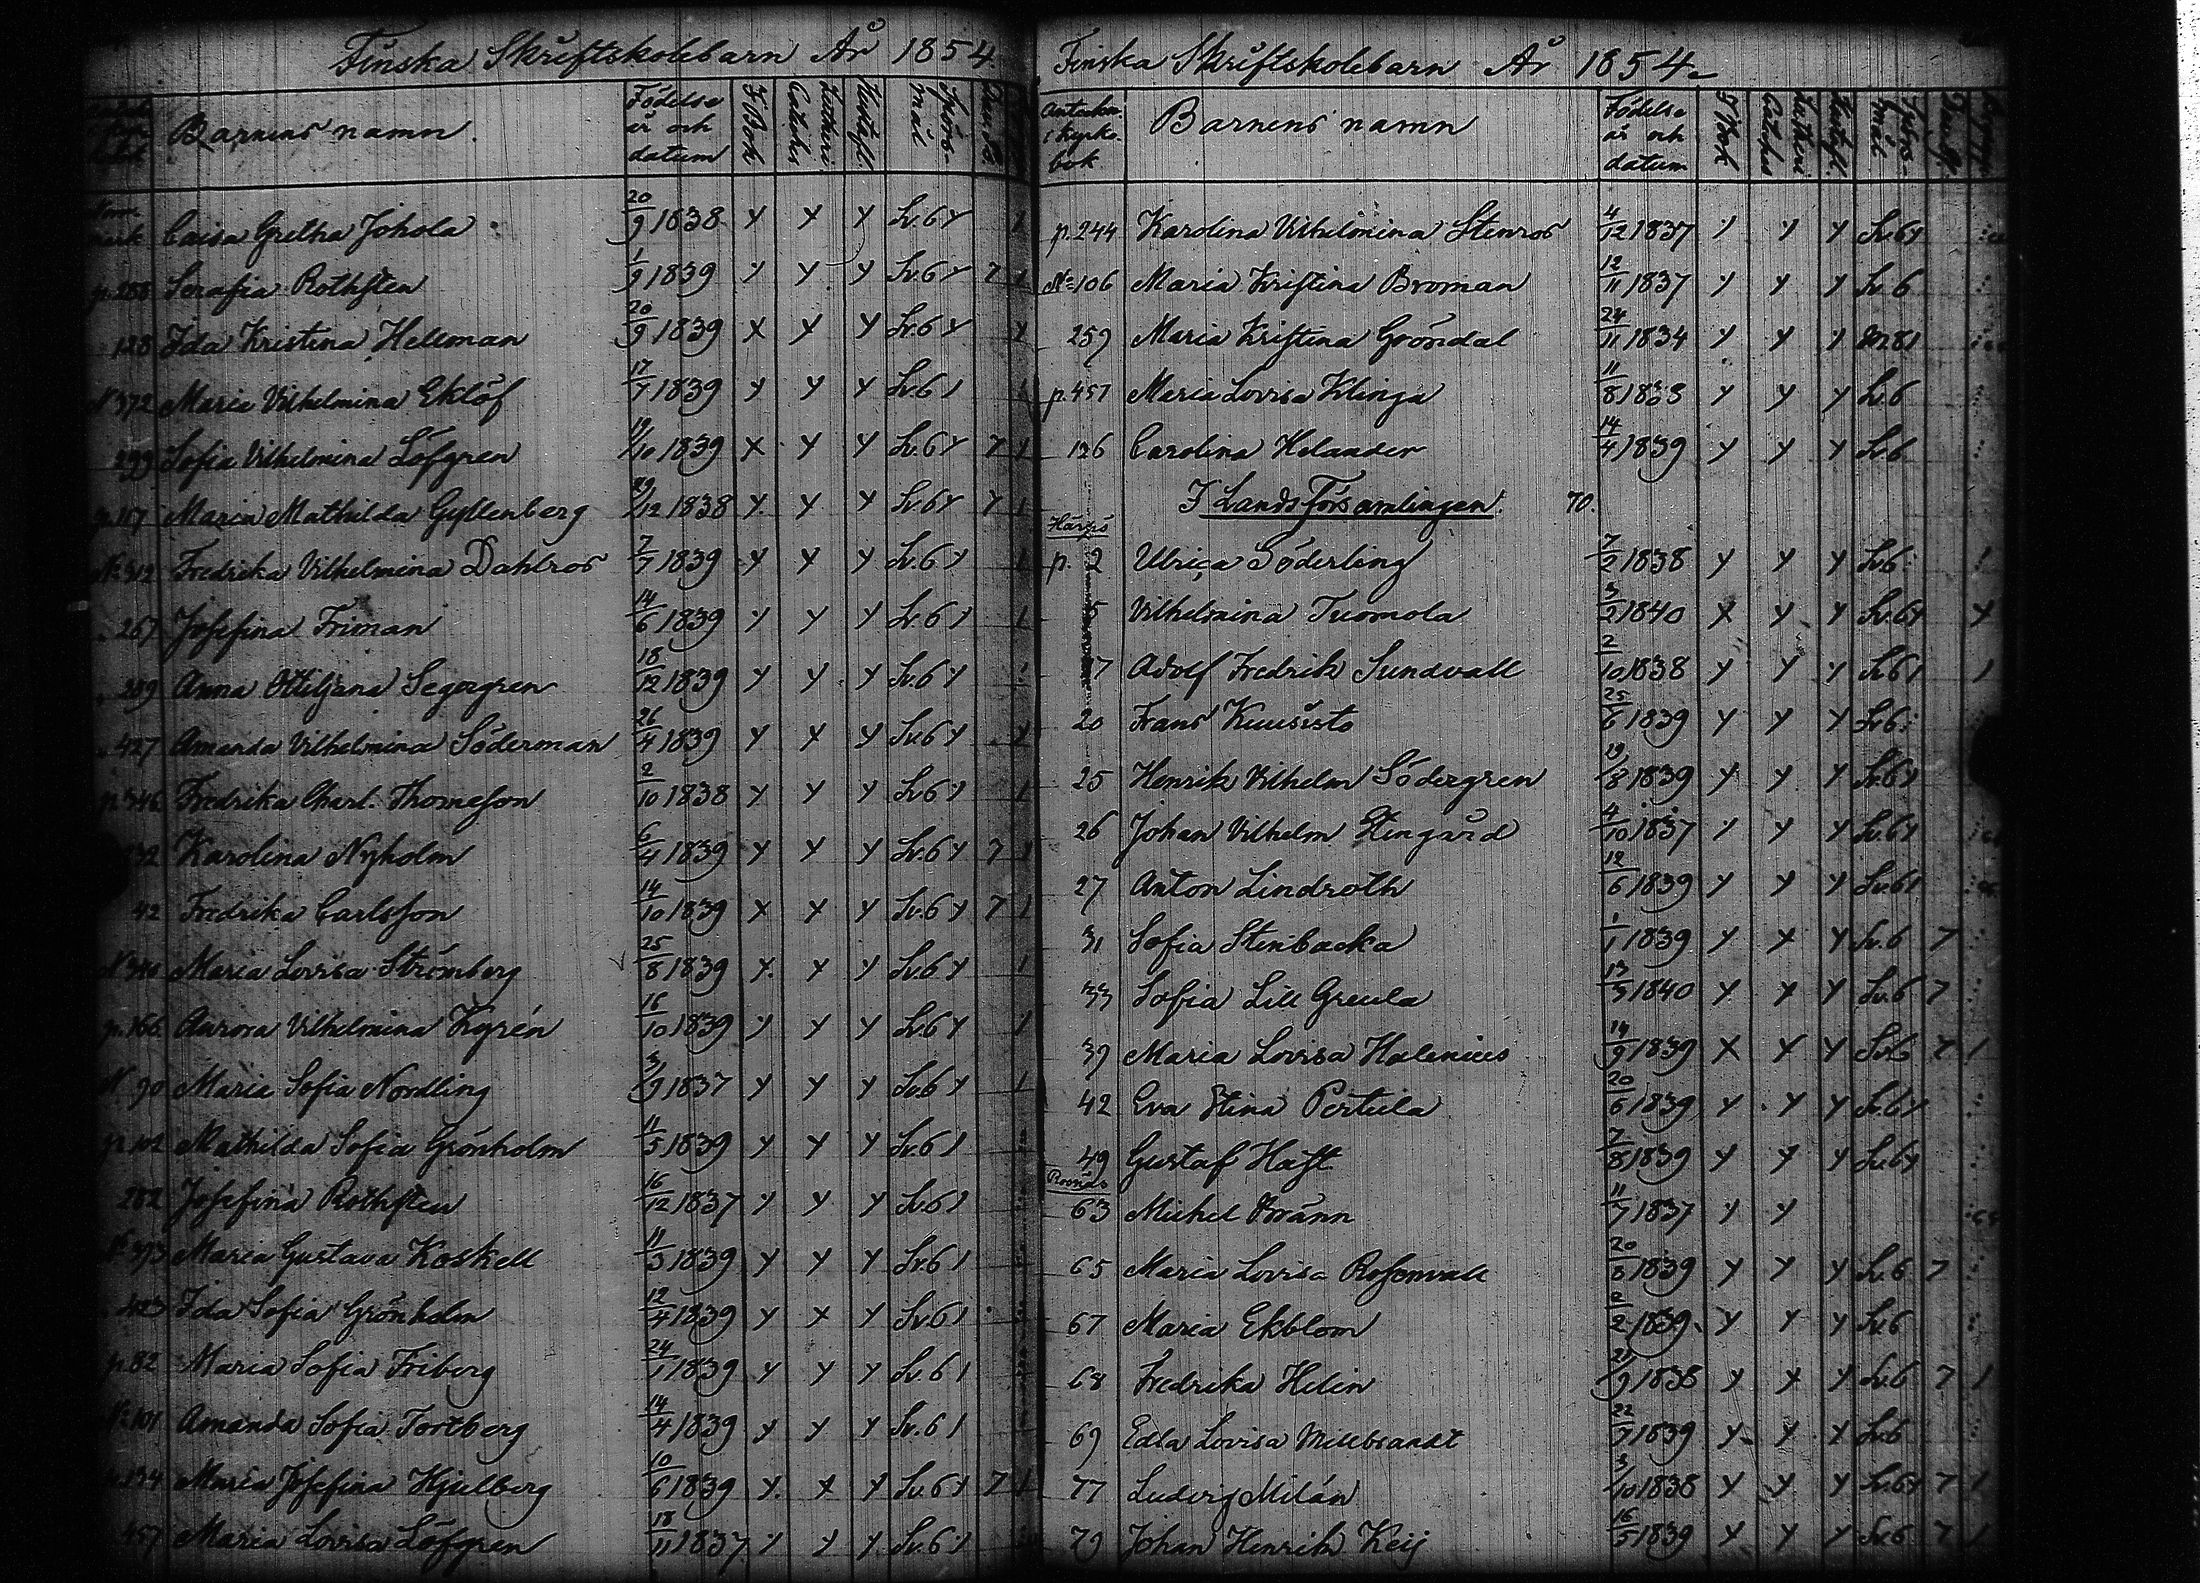 Finska Skriftskolebarn År 1854.
Barnens namn. Födelse år och datum I Bok Cateches Lutheri Hustafl. Spörsmål
Caisa Gretha Johola 20/9 1838 y y y Sv. 6 y 1
p. 288 Serafia Rothsten 1/9 1839 y y y Sv. 6 y 7 1
128 Ida Kristina Hellman 20/9 1839 x y y Sv. 6 y y
N 372 Maria Vilhelmina Eklöf 17/7 1839 y y y Sv. 6 1
299 Sofia Vilhelmina Löfgren 19/10 1839 x y y Sv. 6 y 7 1
p. 117 Maria Mathilda Gyllenberg 29/12 1838 y y y Sv. 6 y y 1
No 312 Fredrika Vilhelmina Dahlros 7/7 1839 y y y Sv. 6 y 1
267 Josefina Friman 14/6 1839 y y y Sv. 6 y 1
289 Anna Ottiljana Segergren 18/12 1839 y y y Sv. 6 y
427 Amanda Vilhelmina Söderman 26/4 1839 y y y Sv. 6 y y
p. 346 Fredrika Charl. Thomeson 2/10 1838 y y y Sv. 6 y 1
332 Karolina Nyholm 6/4 1839 y y y Sv. 6 y 7 y
42 Fredrika Carlsson 14/10 1839 x y y Sv. 6 y 7 1
N 340 Maria Lovisa Strömberg 25/8 1839 y y y Sv. 6 y 1
p. 166 Aurora Vilhelmina Kyrén 16/10 1839 y y y Sv. 6 y 1
N 90 Maria Sofia Nordling 3/9 1837 y y y Sv. 6 y 1
p. 102 Mathilda Sofia Grönholm 11/5 1839 y y y Sv. 6 1
282 Josefina Rothsten 16/12 1837 y y y Sv. 6 1
No 393 Maria Gustava Koskell 11/3 1839 y y y Sv. 6 1
423 Ida Sofia Grönholm 12/4 1839 y y y Sv. 6 1
p. 82 Maria Sofia Friberg 24/1 1839 y y y Sv. 6 1
No 101 Amanda Sofia Tortberg 14/4 1839 y y y Sv. 6 1
p. 134 Maria Josefina Hjulberg 10/6 1839 y y y Sv. 6 y 7 1
457 Maria Lovisa Löfgren 18/11 1837 y y y Sv. 6 y
Finska Skriftskolebarn År 1854.
Anteckn. i kyrkobok Barnens namn Födelse år och datum I Bok Cateches Lutheri Hustafl. Spörsmål
p. 244 Karolina Vilhelmina Stenros 4/12 1837 y y y Sv. 6 y
No 106 Maria Kristina Broman 12/11 1837 y y y Sv. 6
259 Maria Kristina Gröndal 24/11 1834 y y y
p. 457 Maria Lovisa Klinga 11/8 1838 y y y Sv. 6
126 Carolina Helander 14/4 1839 y y y Sv. 6
I Landsförsamlingen. 70.
p. 2 Ulrica Söderling 7/2 1838 y y y Sv. 6 1
5 Vilhelmina Tuomola 3/2 1840 x y y Sv. 6 y y
17 Adolf Fredrik Sundvall 2/10 1838 y y y Sv. 6 y 1
20 Frans Kuusisto 25/6 1839 y y y Sv. 6
25 Henrik Vilhelm Södergren 19/8 1839 y y y Sv. 6 y
26 Johan Vilhelm Stengård 4/10 1837 y y y Sv. 6 y
27 Anton Lindroth 12/6 1839 y y y Sv. 6 1
31 Sofia Stenbacka 1/1 1839 y y y Sv. 6 7
33 Sofia Lill Greula 13/3 1840 y y y Sv. 6 7
39 Maria Lovisa Halenius 14/9 1839 x y y Sv. 6 7 1
42 Eva Stina Pertula 20/6 1839 y y y Sv. 6 y
49 Gustaf Haft 7/8 1839 y y y Sv. 6 y
63 Michel Bränn 11/7 1837 y y
65 Maria Lovisa Rosenvall 20/8 1839 y y y Sv. 6 7
67 Maria Ekblom 2/2 1839 y y y Sv. 6
68 Fredrika Helin 21/9 1838 y y y Sv. 6 7 1
69 Edla Lovisa Willebrandt 22/7 1839 y y y Sv. 6
77 Ludvig Milán 3/10 1838 y y y Sv. 6 y 7 1
79 Johan Henrik Keij 16/5 1839 y y y Sv. 6 7 1